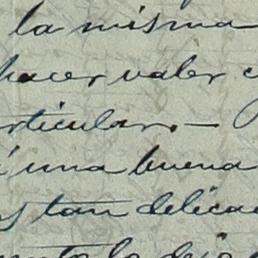 la misma
hacer valer
articular. —
una buena
tan delica
la deja